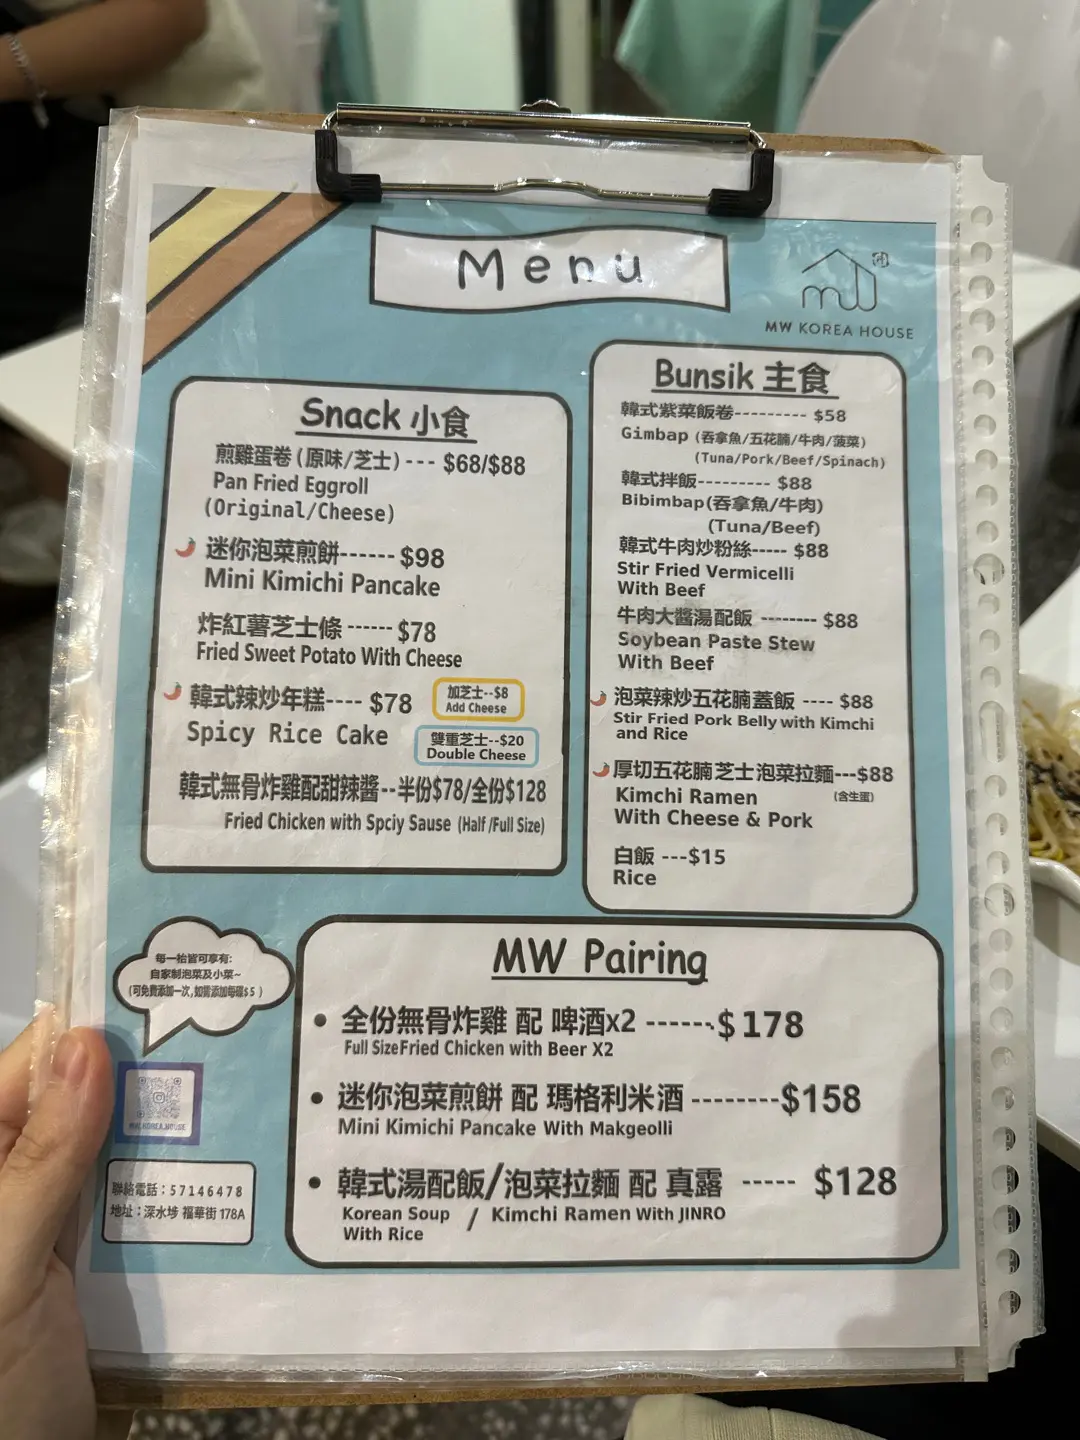 Menu
MW KOREA HOUSE
Snack 小食
煎雞蛋卷 (原味/芝士) --- $68/$88
Pan Fried Eggroll
(Original/Cheese)
迷你泡菜煎餅------ $98
Mini Kimichi Pancake
炸紅薯芝士條 ------ $78
Fried Sweet Potato With Cheese
韓式辣炒年糕---- $78
加芝士--$8
Add Cheese
Spicy Rice Cake
雙重芝士--$20
Double Cheese
韓式無骨炸雞配甜辣醬--半份$78/全份$128
Fried Chicken with Spciy Sause (Half /Full Size)
Bunsik 主食
韓式紫菜飯卷--------- $58
Gimbap (吞拿魚/五花腩/牛肉/菠菜)
(Tuna/Pork/Beef/Spinach)
韓式拌飯--------- $88
Bibimbap(吞拿魚/牛肉)
(Tuna/Beef)
韓式牛肉炒粉絲----- $88
Stir Fried Vermicelli
With Beef
牛肉大醬湯配飯 -------- $88
Soybean Paste Stew
With Beef
泡菜辣炒五花腩蓋飯 ---- $88
Stir Fried Pork Belly with Kimchi
and Rice
厚切五花腩芝士泡菜拉麵---$88
Kimchi Ramen (含生蛋)
With Cheese & Pork
白飯 ---$15
Rice
MW Pairing
全份無骨炸雞 配 啤酒x2 ------- $178
Full SizeFried Chicken with Beer X2
迷你泡菜煎餅 配 瑪格利米酒 --------$158
Mini Kimichi Pancake With Makgeolli
韓式湯配飯/泡菜拉麵 配 真露 ----- $128
Korean Soup / Kimchi Ramen With JINRO
With Rice
每一枱皆可享有:
自家制泡菜及小菜~
(可免費添加一次,如需添加每碟$5 )
MW.KOREA.HOUSE
聯絡電話：57146478
地址：深水埗 福華街 178A